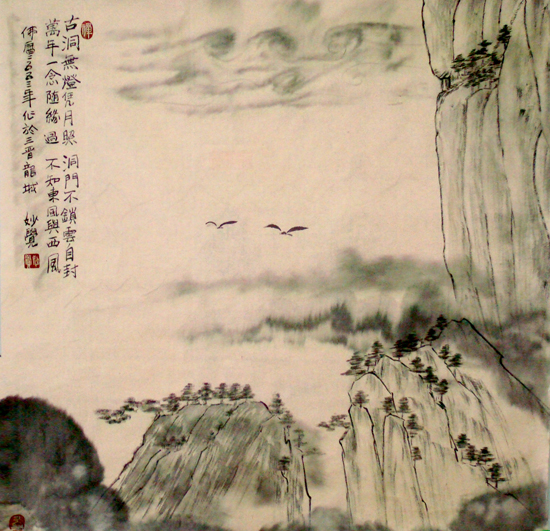 古洞無燈凭月照 洞門不鎖雲自封
萬年一念随緣過 不知東風與西風
佛曆二五五三年作於三晋龍城 妙覺